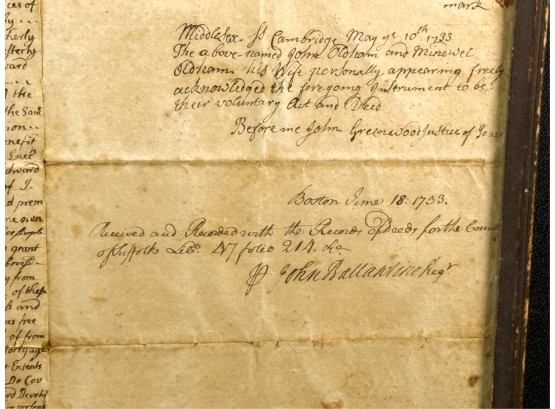 ces of
mark
Middlesex Sc Cambridge May ye 10th 1733
The above named John Oldham and Minewel
Oldham his Wife personally appearing freely
acknowledged the foregoing Instrument to be
their voluntary Act and Deed
Before me John Greenwood Justice of Peace
Boston June 18: 1733.
Received and Recorded with the Records of Deeds for the County
of Suffolk Libo 47 folio 214. &c
John Ballantine Regr
ward
the
the Sam
enefit
dward
of J.
d prem
ne own
grant
y from
of thes
b and
es free
d of from
Mortgage
t Extents
De Cov